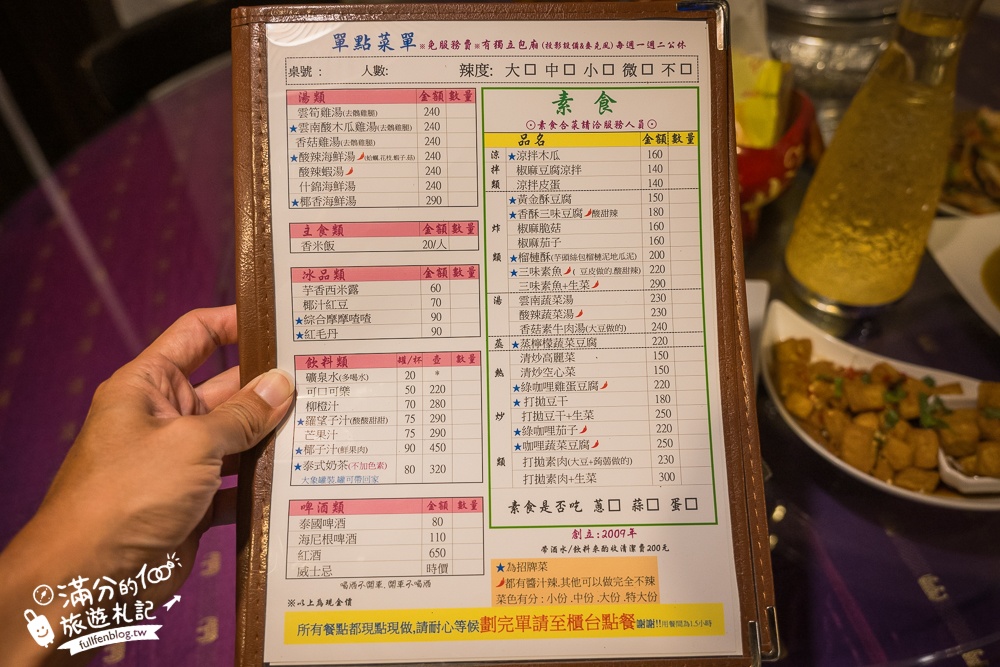 單點菜單 ※免服務費※有獨立包廂(投影設備&麥克風)每週一週二公休
桌號： 人數： 辣度: 大□ 中□ 小□ 微□ 不□
湯類 金額 數量
雲筍雞湯(去鵝雞腿) 240
★雲南酸木瓜雞湯(去鵝雞腿) 240
香菇雞湯(去鵝雞腿) 240
★酸辣海鮮湯(蛤蠣.花枝.蝦子.菇) 240
酸辣蝦湯 240
什錦海鮮湯 240
★椰香海鮮湯 290
主食類 金額 數量
香米飯 20/人
冰品類 金額 數量
芋香西米露 60
椰汁紅豆 70
★綜合摩摩喳喳 90
★紅毛丹 90
飲料類 罐/杯 壺 數量
礦泉水(多喝水) 20 *
可口可樂 50 220
柳橙汁 70 280
★羅望子汁(酸酸甜甜) 75 290
芒果汁 75 290
★椰子汁(鮮果肉) 90 450
★泰式奶茶(不加色素) 80 320
大象罐裝,罐可帶回家
啤酒類 金額 數量
泰國啤酒 80
海尼根啤酒 110
紅酒 650
威士忌 時價
喝酒不開車, 開車不喝酒
※以上為現金價
素食
⊙素食合菜請洽服務人員⊙
品名 金額 數量
涼拌類
★涼拌木瓜 160
椒麻豆腐涼拌 140
涼拌皮蛋 140
炸類
★黃金酥豆腐 150
★香酥三味豆腐 酸甜辣 180
椒麻脆菇 160
椒麻茄子 160
★榴槤酥(芋頭絲包榴槤泥地瓜泥) 200
★三味素魚( 豆皮做的,酸甜辣) 220
三味素魚+生菜 290
湯
雲南蔬菜湯 230
酸辣蔬菜湯 230
香菇素牛肉湯(大豆做的) 240
蒸 ★蒸檸檬蔬菜豆腐 220
熱炒類
清炒高麗菜 150
清炒空心菜 150
★綠咖哩雞蛋豆腐 220
★打拋豆干 180
打拋豆干+生菜 250
★綠咖哩茄子 220
★咖哩蔬菜豆腐 250
打拋素肉(大豆+蒟蒻做的) 230
打拋素肉+生菜 300
素食是否吃 蔥□ 蒜□ 蛋□
創立:2009年
帶酒水/飲料來酌收清潔費200元
★為招牌菜
都有醬汁辣,其他可以做完全不辣
菜色有分 : 小份 ,中份 ,大份 ,特大份
所有餐點都現點現做,請耐心等候劃完單請至櫃台點餐謝謝!!用餐間為1.5小時
滿分的
旅遊札記
fullfenblog.tw